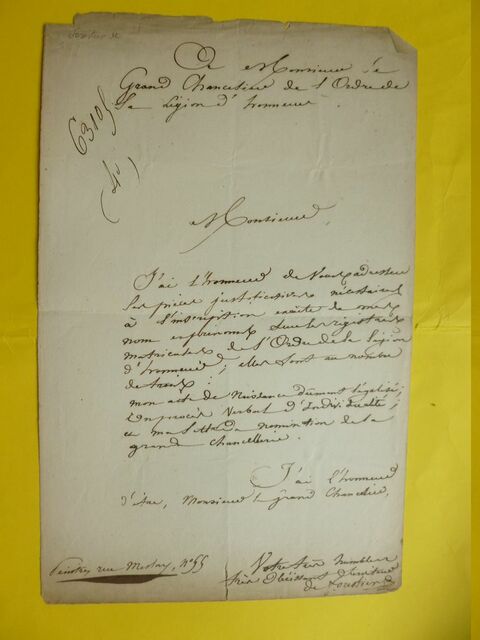 A Monsieur le
Grand Chancelier de l'Ordre de
la Légion d'honneur
63105
Monsieur,
J'ai l'honneur de vous adresser
les pièces justificatives nécessaires
à l'inscription exacte de mes
nom et prénoms sur les registres
matricules de l'Ordre de la Légion
d'honneur; elles sont au nombre
de trois:
mon acte de Naissance dûment légalisé;
un procès Verbal d'Individualité;
et ma lettre de nomination de la
grande Chancellerie.
J'ai l'honneur
d'être, Monsieur le grand Chancelier,
Votre très humble
très obéissant Serviteur
rue Meslay, N° 55